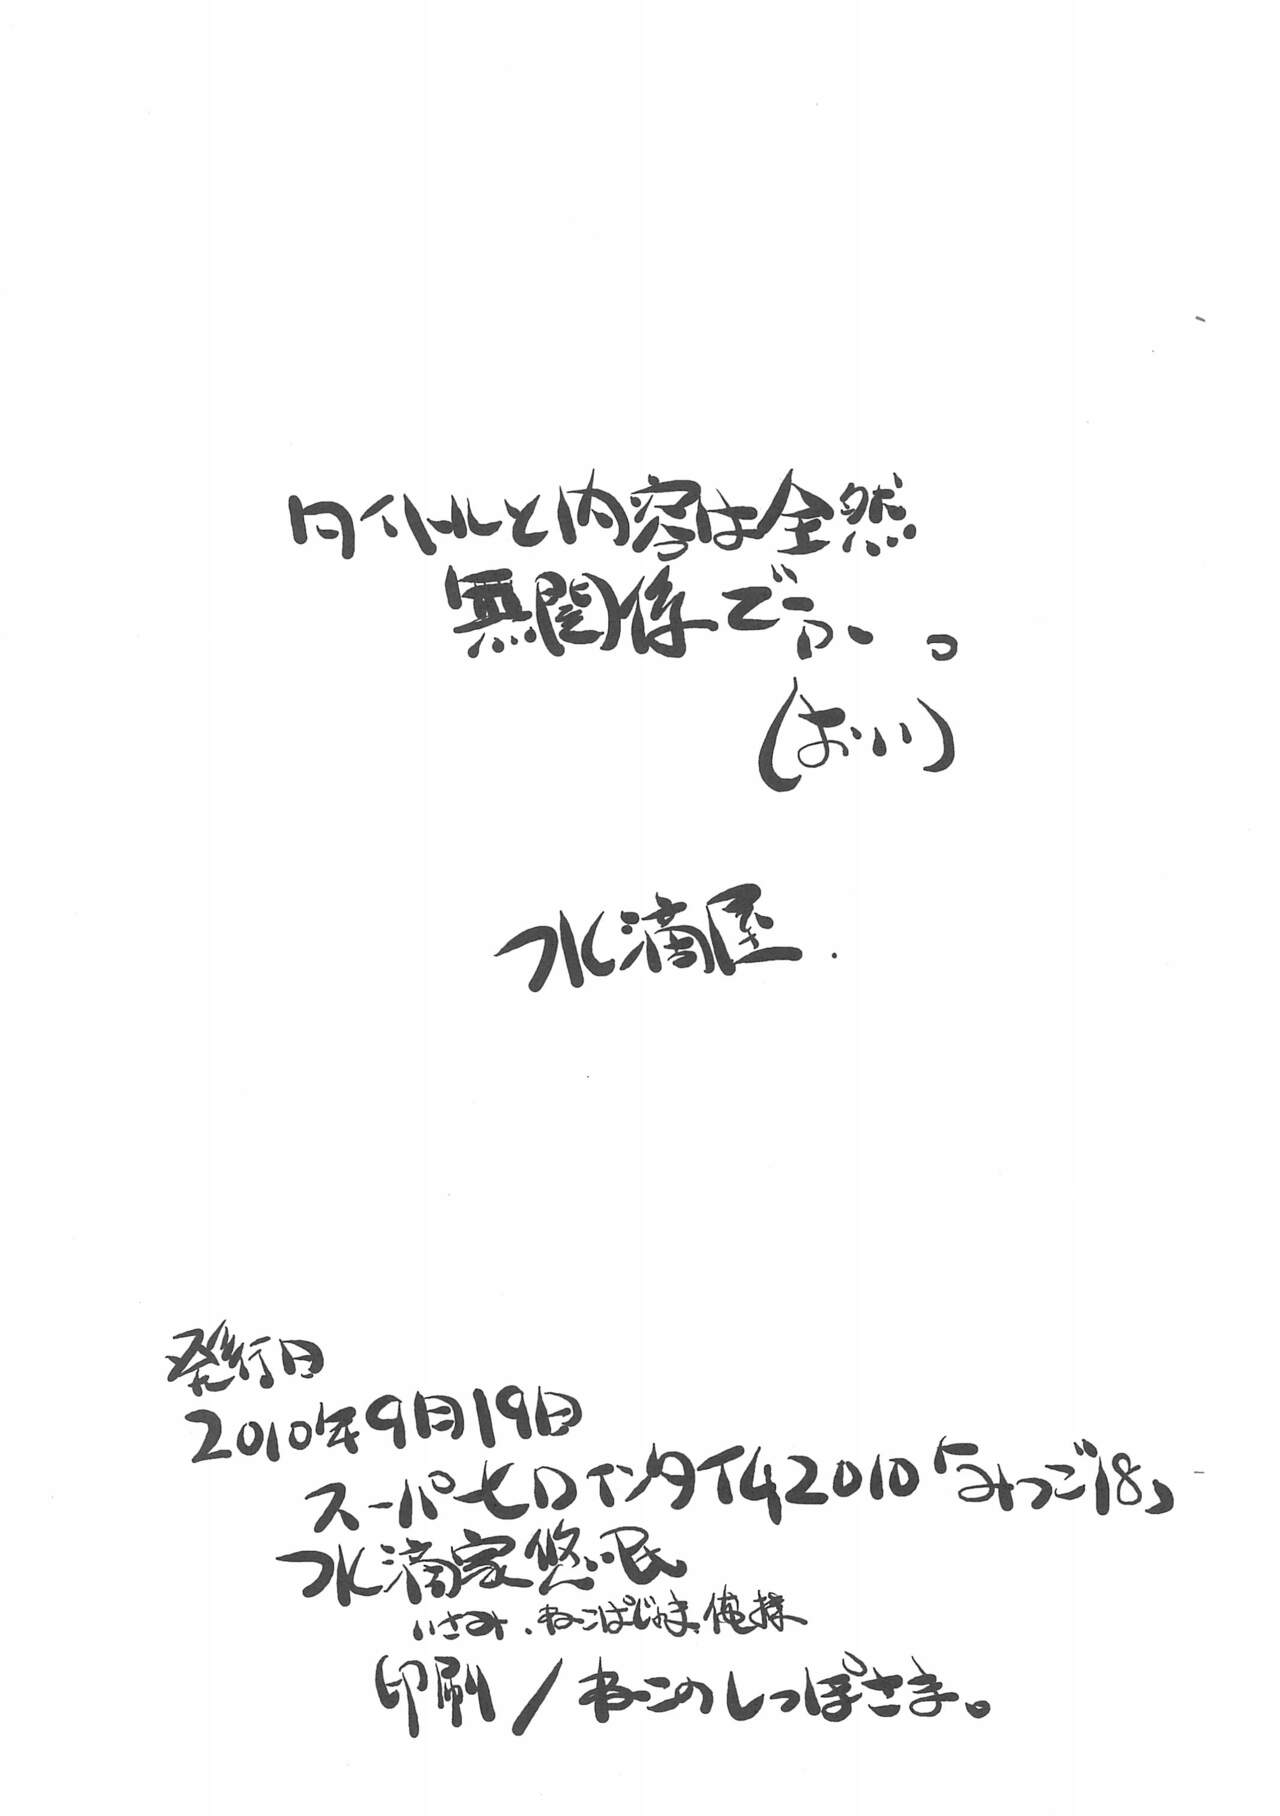 タイトルと内容は全然
無関係でさーっ
(おいい)
水滴屋.
発行日
2010年9月19日
スーパーヒロインタイム2010「みつご18」
水滴家悠民
いさみ.ねこぱじゃま.俺様
印刷/ねこのしっぽさま。